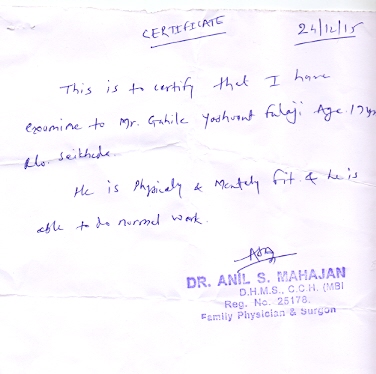 CERTIFICATE
24/12/15
This is to certify that I have
examine to Mr. Gahile Yashvant Fulaji Age. 17 yr
R/o.
He is Physicaly & Mentely fit & he is
able to do normal work.
DR. ANIL S. MAHAJAN
D.H.M.S., C.C.H. (MBI
Reg. No. 25178.
Family Physician & Surgon